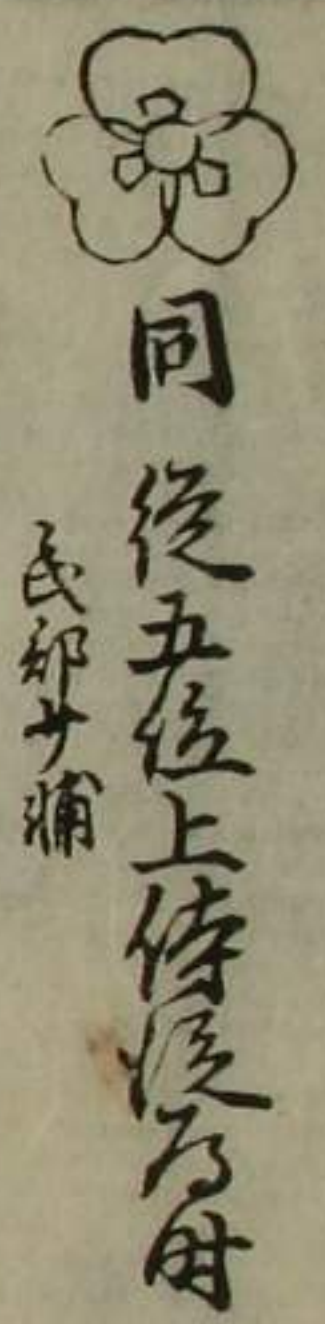 同 従五位上侍従為時
民部少輔